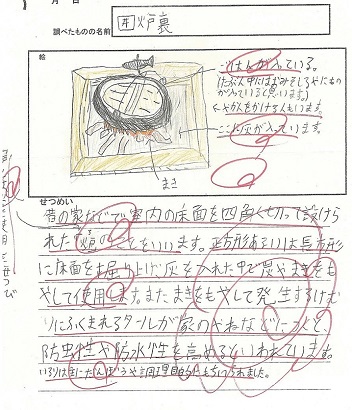 月 日
調べたものの名前 囲炉裏
絵
ごはんが入っている。
(たぶん中にはおみそしるやにもの
が入っていると思います。)
←やかんをかける人もいます。
ここに灰が入っています。
まき
せつめい
昔の家などで室内の床面を四角く切って設けら
れた炉のことをいいます。正方形あるいは長方形
に床面をほり上げ、灰を入れた中で炭やまきをも
やして使用します。また、まきをもやして発生するけむ
りにふくまれるタールが家のやねなどにつくと、
防虫性や防水性を高めるといわれています。
いろりは主にだんぼうや調理目的にもちいられました。